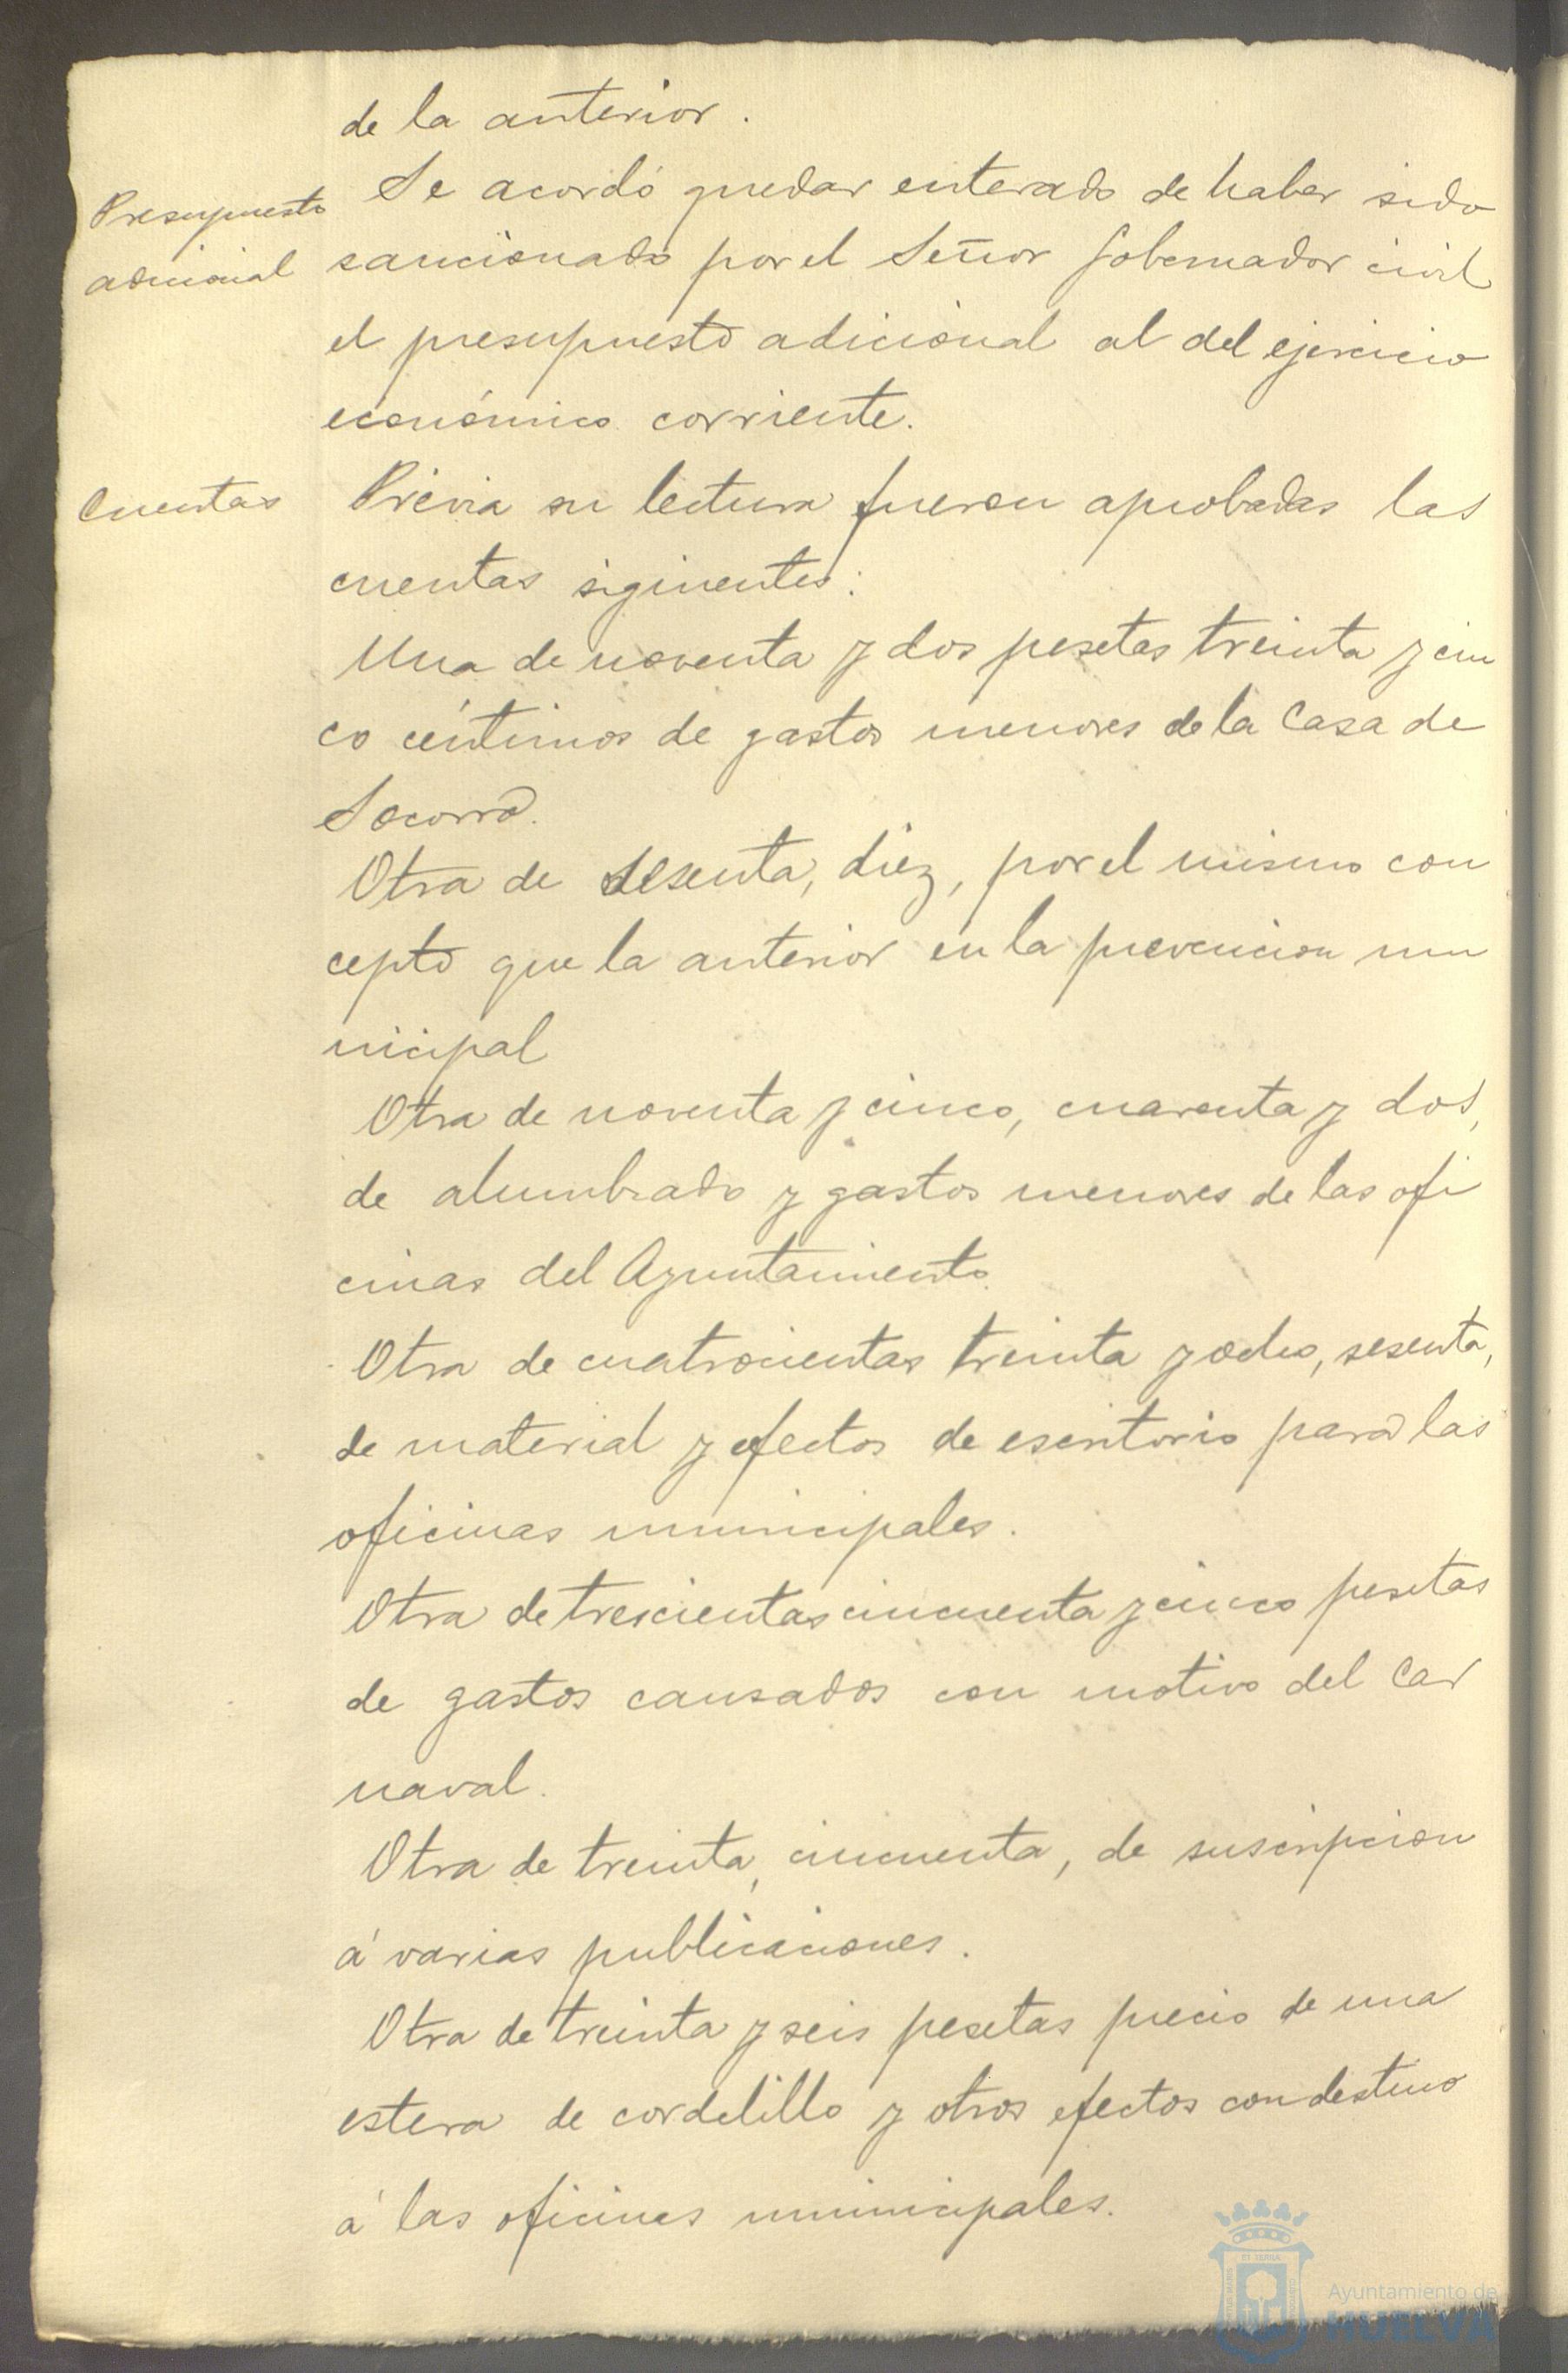 de la anterior.
Presupuesto
adicional
Se acordó quedar enterado de haber sido
sancionado por el Señor Gobernador civil
el presupuesto adicional al del ejercicio
económico corriente.
Cuentas
Prévia su lectura fueron aprobadas las
cuentas siguientes:
Una de noventa y dos pesetas treinta y cin
co céntimos de gastos menores de la Casa de
Socorro.
Otra de sesenta, diez, por el mismo con
cepto que la anterior en la prevencion mu
nicipal
Otra de noventa y cinco, cuarenta y dos,
de alumbrado y gastos menores de las ofi
cinas del Ayuntamiento.
Otra de cuatrocientas treinta y ocho, sesenta,
de material y efectos de escritorio para las
oficinas municipales.
Otra de trescientas cincuenta y cinco pesetas
de gastos causados con motivo del Car
naval.
Otra de treinta, cincuenta, de suscripcion
á varias publicaciones.
Otra de treinta y seis pesetas precio de una
estera de cordelillo y otros efectos con destino
á las oficinas municipales.
Ayuntamiento de
HUELVA